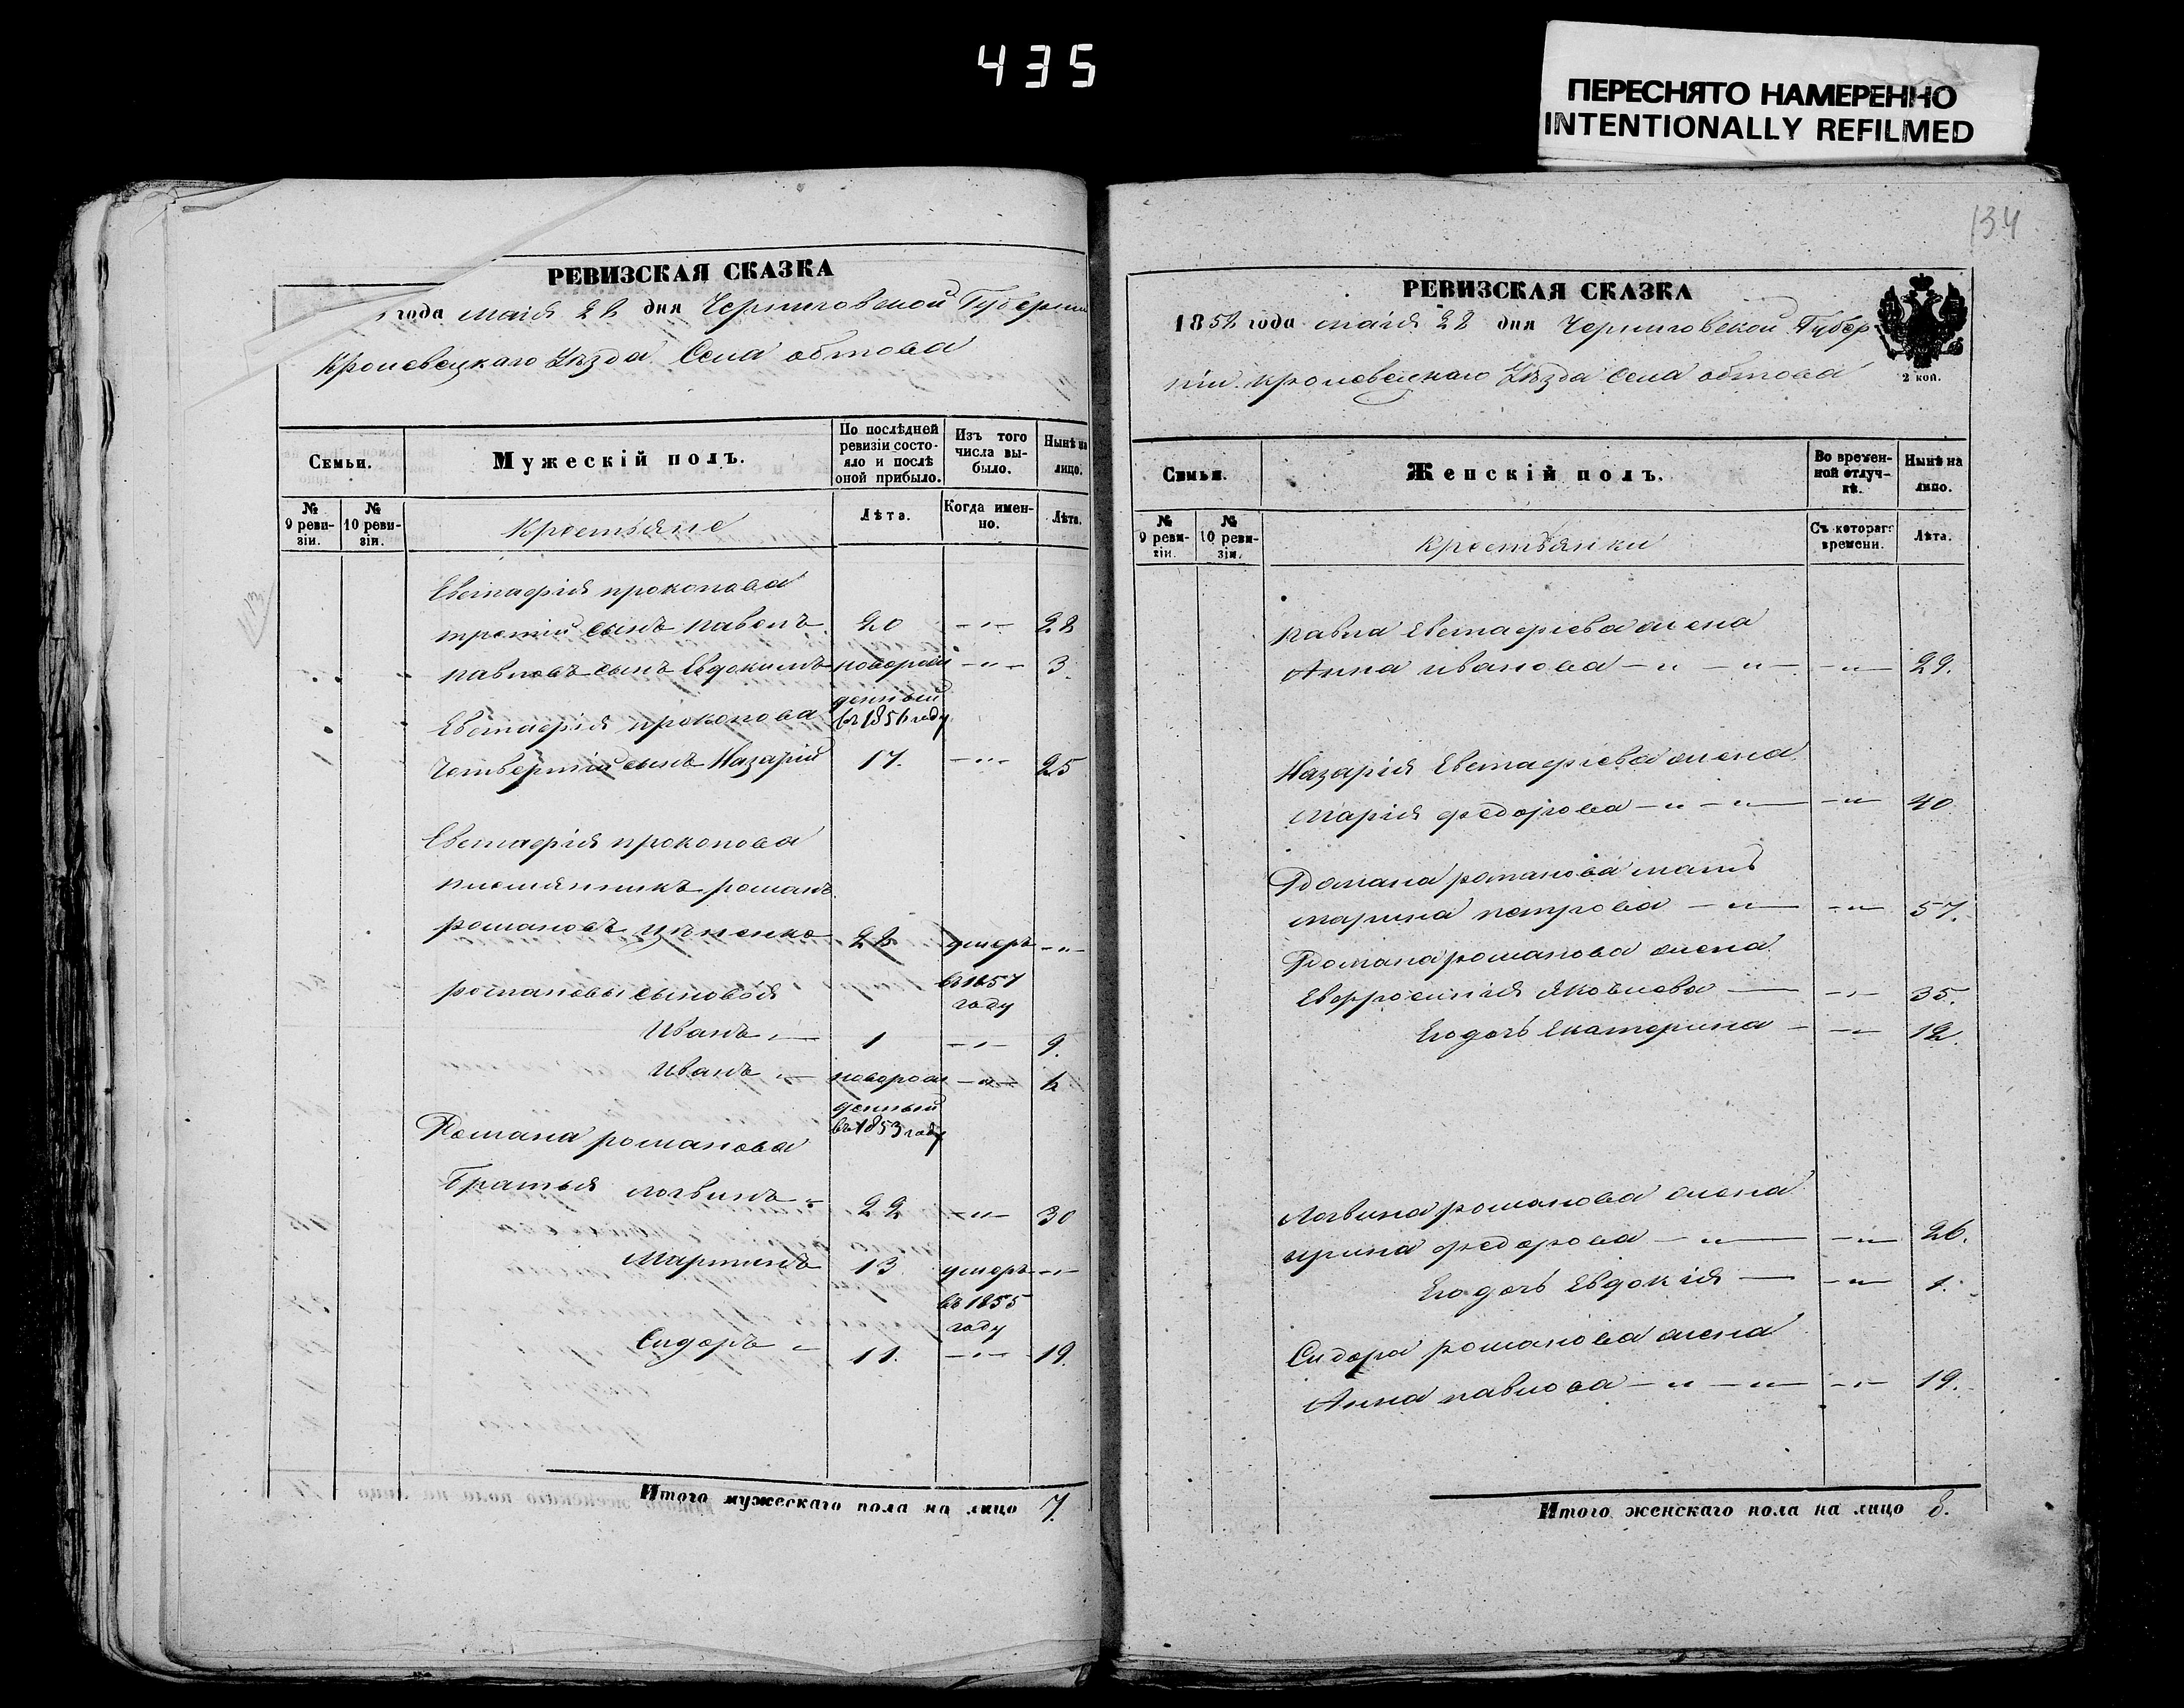 435
ПЕРЕСНЯТО НАМЕРЕННО
INTENTIONALLY REFILMED
РЕВИЗСКАЯ СКАЗКА
года маія 22 дня Черниговской Губерніи
Кролевецкаго Уѣзда Села обтова
Семьи.
Мужескій полъ.
По послѣдней ревизіи состояло и послѣ оной прибыло.
Изъ того числа выбыло.
Нынѣ на лицо.
№ 9 ревизіи.
№ 10 ревизіи.
Крестьяне
Лѣта.
Когда именно.
Лѣта.
Евстафія прокопова
третій сынъ павелъ 20 — 〃 — 28
павловъ сынъ Евдокимъ новорож — 〃 — 3.
денный
въ 1856 году
Евстафія прокопова
четвертый сынъ Назарій 17. — 〃 — 25
Евстафія прокопова
племянникъ романъ
романовъ 28 умеръ — 〃 —
въ 1857
году
романовы сыновья
Иванъ 〃 — 1 — 〃 — 9.
Иванъ 〃 — новорож — 〃 — 6
денный
въ 1853 году
Романа романова
Братья логвинъ 〃 22 — 〃 — 30
Мартинъ 13 умеръ — 〃 —
въ 1855
году
Сидоръ 〃 11. — 〃 — 19.
Итого мужескаго пола на лицо 7.
134
РЕВИЗСКАЯ СКАЗКА
1858 года маія 22 дня Черниговской Губер
ніи кролевецкаго Уѣзда Села обтова
2 коп.
Семьи.
Женскій полъ.
Во временной отлучкѣ.
Нынѣ на лицо.
№ 9 ревизіи.
№ 10 ревизіи.
Крестьянки
Съ котораго времени.
Лѣта.
павла Евстафіева жена
Анна иванова — 〃 — 〃 — — 〃 — 29.
Назарія Евстафіева жена
марія федорова — 〃 — 〃 — — 〃 — 40
Романа романова мать
марина петрова — 〃 — — 〃 — 57.
Романа романова жена
Евфросинія яковлева — — 〃 — 35.
Его дочь Екатерина — — 〃 — 12.
Логвина романова жена
ирина федорова — 〃 — — 〃 — 26.
Его дочь Евдокія — — 〃 — 1.
Сидора романова жена
Анна павлова — 〃 — 〃 — — 〃 — 19.
Итого женскаго пола на лицо 8.